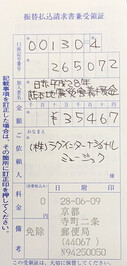 振替払込請求書兼受領証
口座記号番号
00130 4
265072
加入者名
日赤平成28年
熊本地震災害義援金
金額
¥35467
おなまえ
(株)ラヴィンターナショナル
ミュージック
料金
0
免除
備考
日附印
28-06-09
京都
寺町二条
郵便局
(44067)
N94250050
記載事項を訂正した場合は、その箇所に訂正印を押してください。